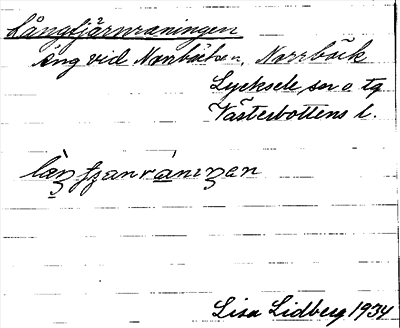 Långtjärnraningen
äng vid Norrbäcken, Norrbäck
Lycksele sn o tg
Västerbottens l.
Lisa Lidberg 1934